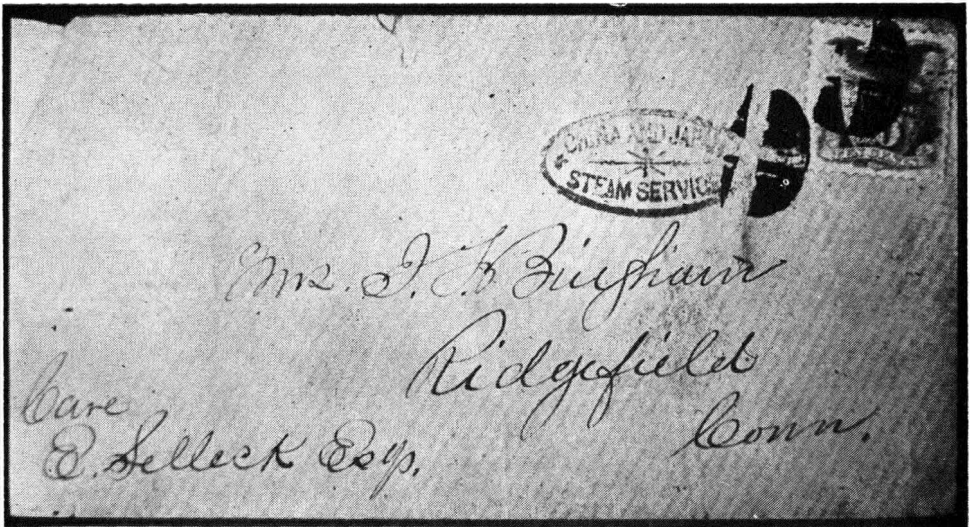 CHINA AND JAPAN
STEAM SERVICE
Mrs. I. F. Bingham
Ridgefield
Conn.
Care
E. Selleck Esqr.